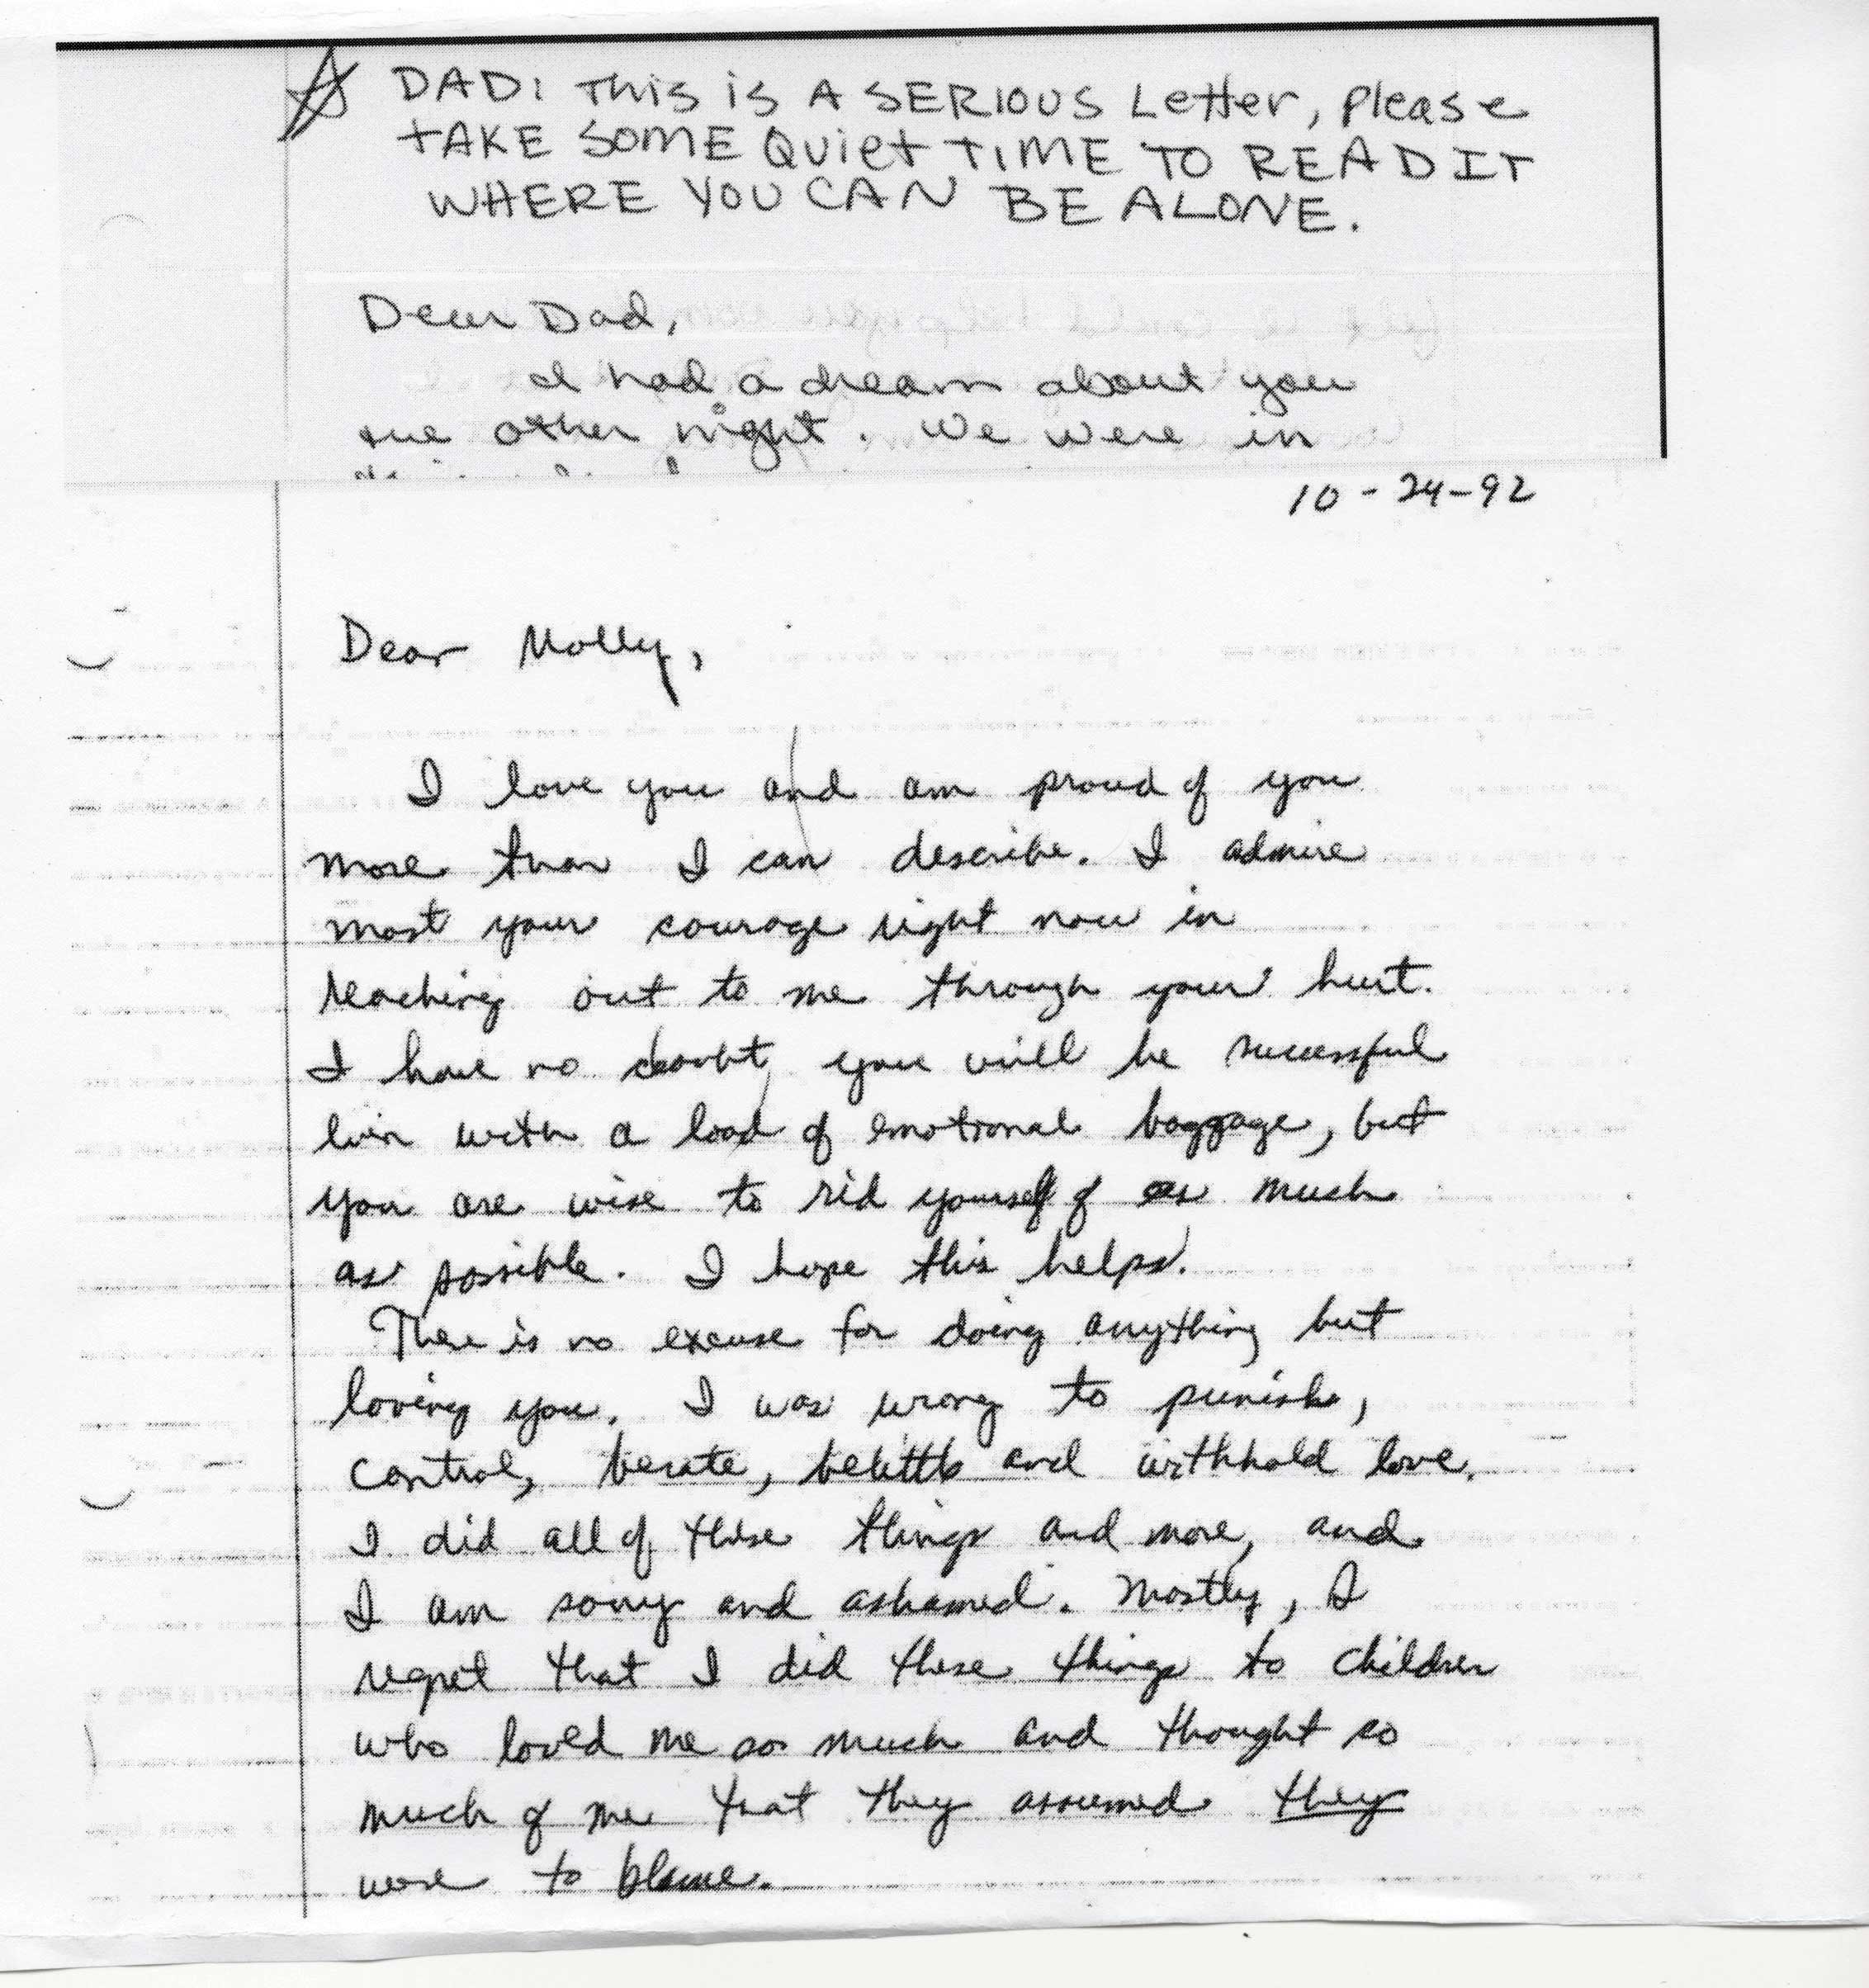 DAD: This is A SERIOUS Letter, Please
TAKE SOME QUIET TIME TO READ IT
WHERE YOU CAN BE ALONE.
Dear Dad,
I had a dream about you
the other night. We were in
10-24-92
Dear Molly,
I love you and am proud of you
more than I can describe. I admire
most your courage right now in
reaching out to me through your hurt.
I have no doubt you will be successful
even with a load of emotional baggage, but
you are wise to rid yourself of as much
as possible. I hope this helps.
There is no excuse for doing anything but
loving you. I was wrong to punish,
control, berate, belittle and withhold love.
I did all of these things and more, and
I am sorry and ashamed. Mostly, I
regret that I did these things to children
who loved me so much and thought so
much of me that they assumed they
were to blame.